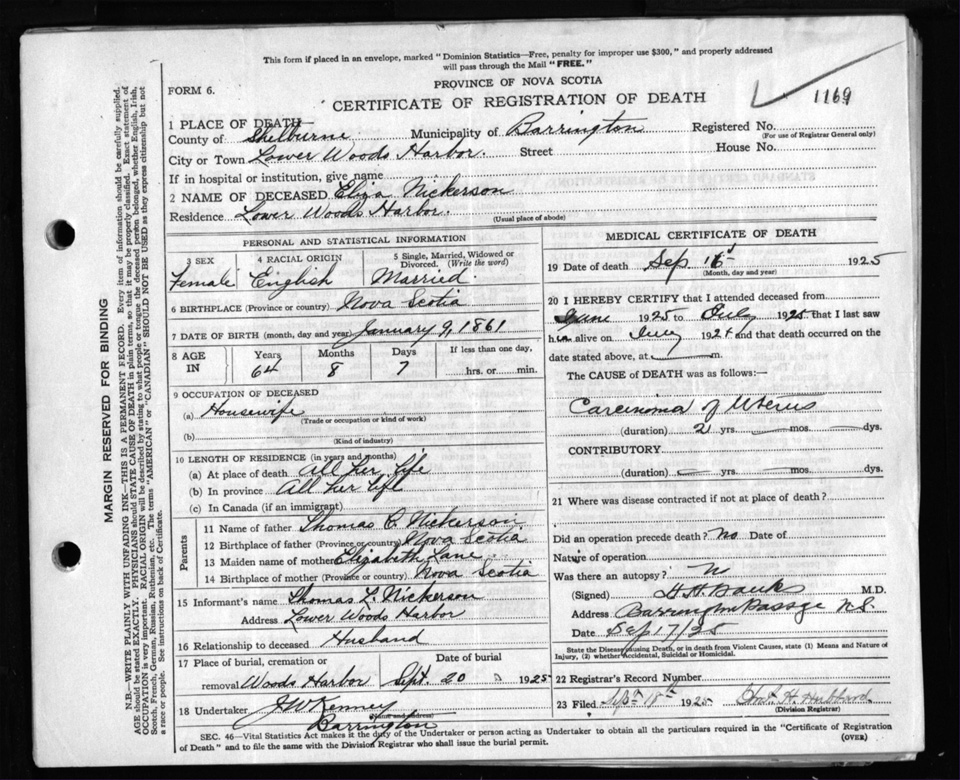 This form if placed in an envelope, marked "Dominion Statistics—Free, penalty for improper use $300," and properly addressed
will pass through the Mail "FREE."
PROVINCE OF NOVA SCOTIA
FORM 6.
CERTIFICATE OF REGISTRATION OF DEATH
1169
1 PLACE OF DEATH
County of Shelburne Municipality of Barrington Registered No.
(For use of Registrar General only)
City or Town Lower Woods Harbor. Street House No.
If in hospital or institution, give name
2 NAME OF DECEASED Eliza Nickerson
Residence Lower Woods Harbor.
(Usual place of abode)
PERSONAL AND STATISTICAL INFORMATION
3 SEX 4 RACIAL ORIGIN 5 Single, Married, Widowed or Divorced. (Write the word)
Female English Married
6 BIRTHPLACE (Province or country) Nova Scotia
7 DATE OF BIRTH (month, day and year) January 9, 1861
8 AGE IN Years Months Days If less than one day,
64 8 7 hrs. or min.
9 OCCUPATION OF DECEASED
(a) Housewife
(Trade or occupation or kind of work)
(b)
(Kind of industry)
10 LENGTH OF RESIDENCE (in years and months)
(a) At place of death All her life
(b) In province All her life
(c) In Canada (if an immigrant)
Parents
11 Name of father Thomas C. Nickerson.
12 Birthplace of father (Province or country) Nova Scotia
13 Maiden name of mother Elizabeth Lane
14 Birthplace of mother (Province or country) Nova Scotia
15 Informant's name Thomas L. Nickerson
Address Lower Woods Harbor
16 Relationship to deceased Husband
17 Place of burial, cremation or Date of burial
removal Woods Harbor Sept 20 1925
18 Undertaker J W Kenney
(Name and address)
Barrington
MEDICAL CERTIFICATE OF DEATH
19 Date of death Sep 16 1925
(Month, day and year)
20 I HEREBY CERTIFY that I attended deceased from
June 1925 to July 1925 that I last saw
h er alive on July 192 and that death occurred on the
date stated above, at m.
The CAUSE of DEATH was as follows:—
Carcinoma of Uterus
(duration) 2 yrs. mos. dys.
CONTRIBUTORY
(duration) yrs. mos. dys.
21 Where was disease contracted if not at place of death?
Did an operation precede death? no Date of
Nature of operation
Was there an autopsy? No
(Signed) Banks M.D.
Address Barrington Passage N.S.
Date Sep 17/25
State the Disease causing Death, or in death from Violent Causes, state (1) Means and Nature of
Injury, (2) whether Accidental, Suicidal or Homicidal.
22 Registrar's Record Number
23 Filed Sept 18th 1925
(Division Registrar)
SEC. 46—Vital Statistics Act makes it the duty of the Undertaker or person acting as Undertaker to obtain all the particulars required in the "Certificate of Registration
of Death" and to file the same with the Division Registrar who shall issue the burial permit. (OVER)
MARGIN RESERVED FOR BINDING
N.B.—WRITE PLAINLY WITH UNFADING INK—THIS IS A PERMANENT RECORD. Every item of information should be carefully supplied.
AGE should be stated EXACTLY. PHYSICIANS should STATE CAUSE OF DEATH in plain terms, so that it may be properly classified. Exact statement of
OCCUPATION is very important. RACIAL ORIGIN will be described by stating to what people or tongue the deceased person belonged, whether English, Irish,
Scotch, French, German, Russian, Ruthenian, etc. The terms "AMERICAN" or "CANADIAN" SHOULD NOT BE USED as they express citizenship but not
a race or people. See instructions on back of Certificate.